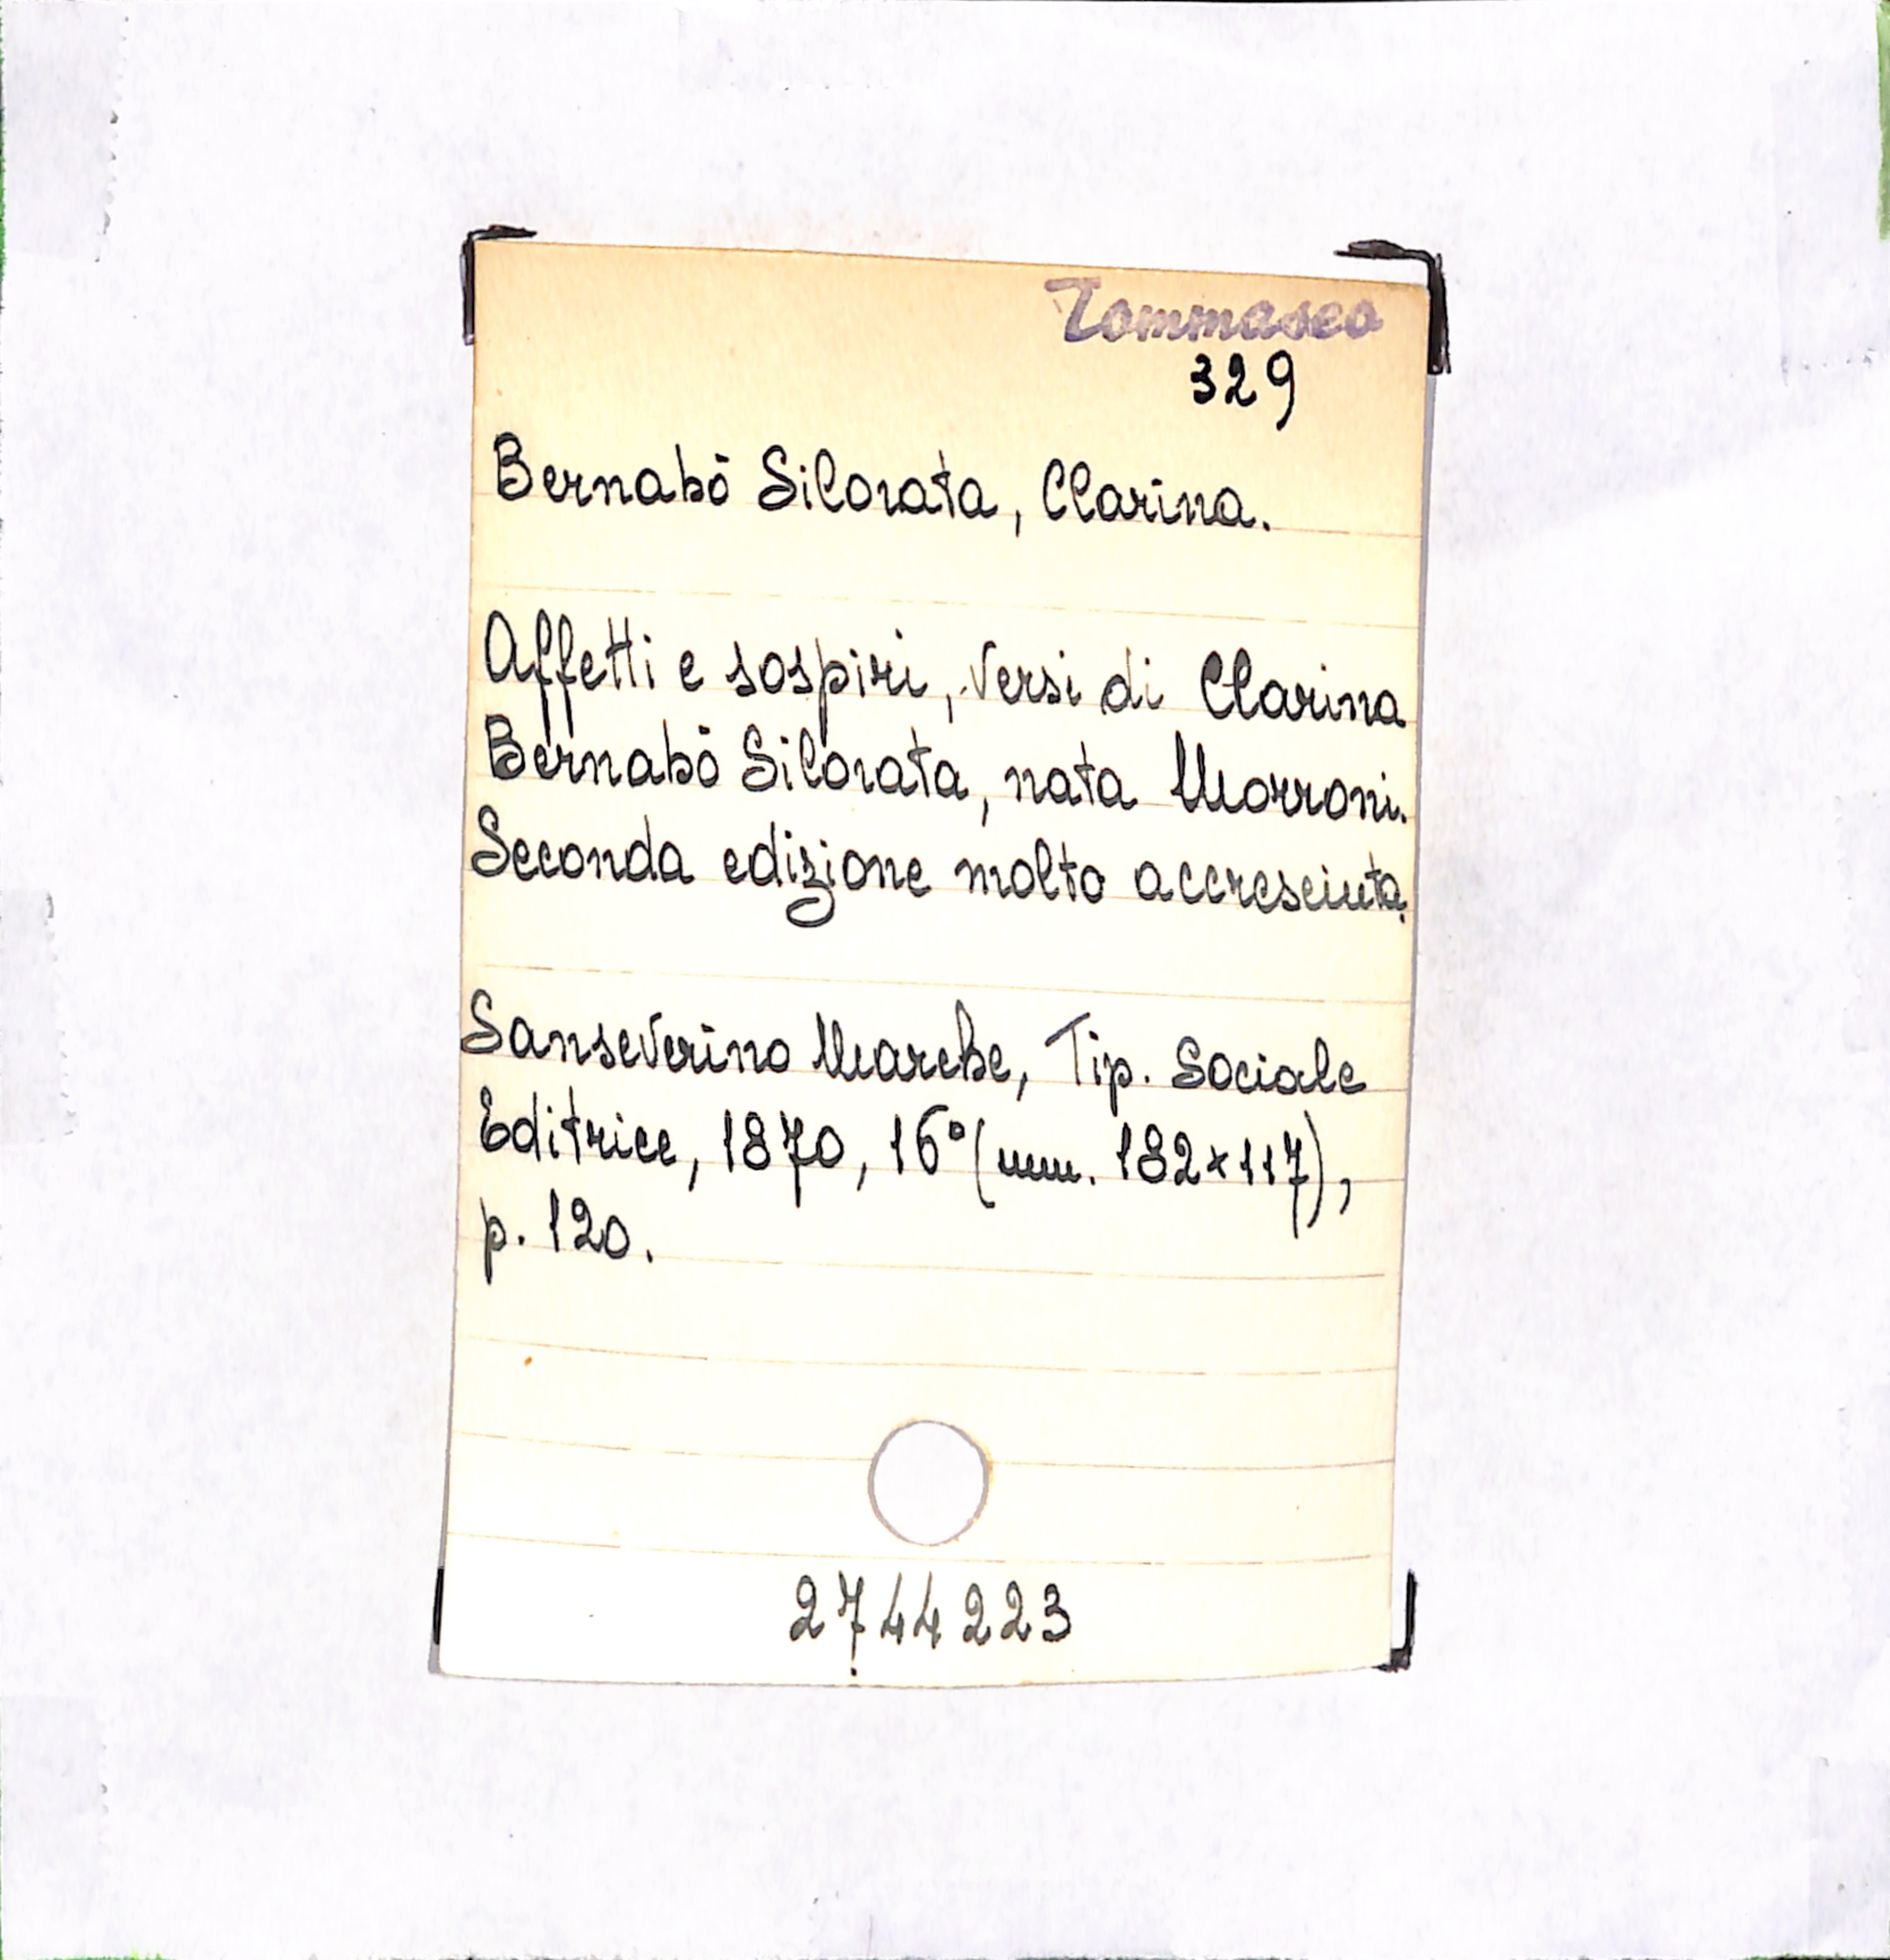 Tommaseo
329
Bernabò Silorata, Clarina.
Affetti e sospiri, versi di Clarina
Bernabò Silorata, nata Morroni.
Seconda edizione molto accresciuta.
Sanseverino Marche, Tip. Sociale
Editrice, 1870, 16° (mm. 182×117),
p. 120.
2744223